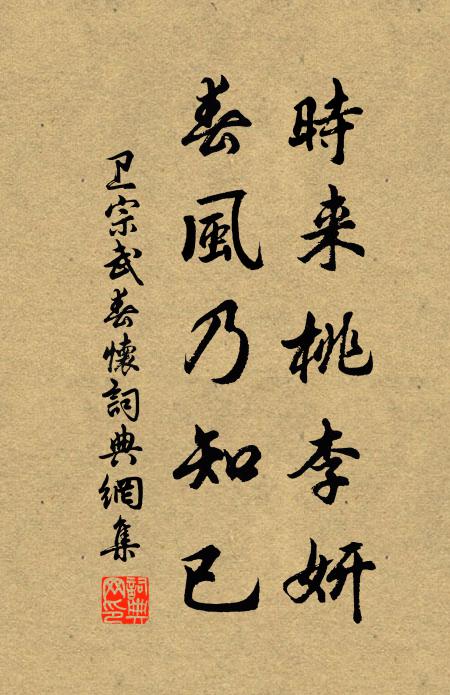 時来桃李妍
春風乃知己
卫宗武春懷詞典網集
詞典網印